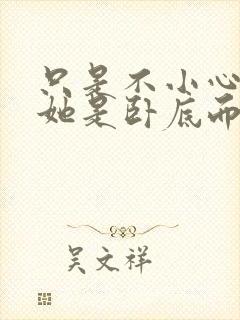 只是不小心
她是卧底而
吴文祥